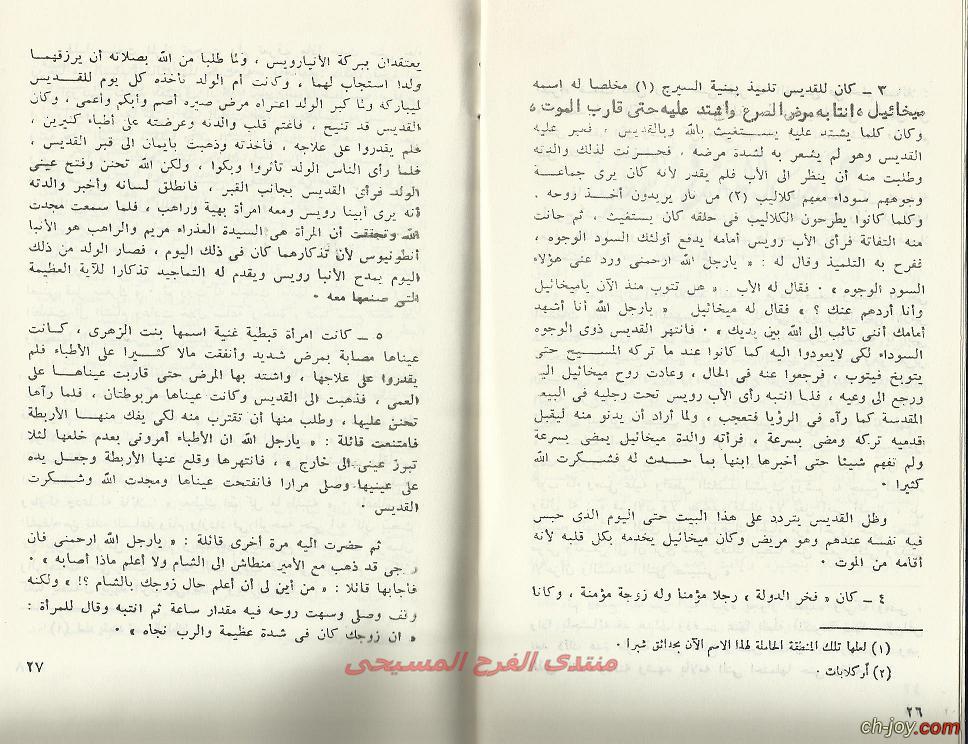 ٣ – كان للقديس تلميذ بمنية السيرج (١) مخلصا له اسمه
ميخائيل، انتابه مرض الصرع واشتد عليه حتى قارب الموت،
وكان كلما يشتد عليه يستغيث بالله وبالقديس، فعبر عليه
القديس وهو لم يشعر به لشدة مرضه. فحزنت لذلك والدته
وطلبت منه أن ينظر الى الأب فلم يقدر لأنه كان يرى جماعة
وجوههم سوداء معهم كلاليب (٢) من نار يريدون أخذ روحه.
وكلما كانوا يطرحون الكلاليب فى حلقه كان يستغيث، ثم حانت
منه التفاتة فرأى الأب رويس أمامه يدفع أولئك السود الوجوه،
ففرح به التلميذ وقال له: «يارجل الله ارحمنى ورد عنى هؤلاء
السود الوجوه». فقال له الأب «هل تتوب منذ الآن ياميخائيل
وأنا أردهم عنك؟» فقال له ميخائيل «يارجل الله أنا أشهد
أمامك أننى تائب الى الله بين يديك». فانتهر القديس ذوى الوجوه
السوداء لكى لايعودوا اليه كما كانوا عند ما تركه المسيح حتى
يتوبخ فيتوب، فرجعوا عنه فى الحال، وعادت روح ميخائيل اليه
ورجع الى وعيه، فلما انتبه رأى الأب رويس تحت رجليه فى البيعة
المقدسة كما رآه فى الرؤيا فتعجب، ولما أراد أن يدنو منه ليقبل
قدميه تركه ومضى بسرعة، فرأته والدة ميخائيل يمضى بسرعة
ولم تفهم شيئا حتى أخبرها ابنها بما حدث له فشكرت الله
كثيرا.
وظل القديس يتردد على هذا البيت حتى اليوم الذى حبس
فيه نفسه عندهم وهو مريض وكان ميخائيل يخدمه بكل قلبه لأنه
أقامه من الموت.
٤ – كان «فخر الدولة» رجلا مؤمنا وله زوجة مؤمنة، وكانا
(١) لعلها تلك المنطقة الحاملة لهذا الاسم الآن بحدائق شبرا.
(٢) أو كلابات.
٢٦
يعتقدان ببركة الأنبارويس، ولما طلبا من الله بصلاته أن يرزقهما
ولدا استجاب لهما، وكانت أم الولد تأخذه كل يوم للقديس
ليباركه ولما كبر الولد اعتراه مرض صيره أصم وأبكم وأعمى، وكان
القديس قد تنيح، فاغتم قلب والدته وعرضته على أطباء كثيرين،
فلم يقدروا على علاجه، فأخذته وذهبت بايمان الى قبر القديس،
فلما رأى الناس الولد تأثروا وبكوا، ولكن الله تحنن وفتح عينى
الولد فرأى القديس بجانب القبر، فانطلق لسانه وأخبر والدته
أنه يرى أبينا رويس ومعه امرأة بهية وراهب، فلما سمعت مجدت
الله وتحققت أن المرأة هى السيدة العذراء مريم والراهب هو الأنبا
أنطونيوس لأن تذكارهما كان فى ذلك اليوم، فصار الولد من ذلك
اليوم يمدح الأنبا رويس ويقدم له التماجيد تذكارا للآية العظيمة
التى صنعها معه.
٥ – كانت امرأة قبطية غنية اسمها بنت الزهرى، كانت
عيناها مصابة بمرض شديد وأنفقت مالا كثيرا على الأطباء فلم
يقدروا على علاجها، واشتد بها المرض حتى قاربت عيناها على
العمى، فذهبت الى القديس وكانت عيناها مربوطتان، فلما رآها
تحنن عليها، وطلب منها أن تقترب منه لكى يفك منها الأربطة
فامتنعت قائلة: «يارجل الله ان الأطباء أمرونى بعدم خلعها لئلا
تبرز عينى الى خارج»، فانتهرها وقلع عنها الأربطة وجعل يده
على عينيها وصلى مرارا فانفتحت عيناها ومجدت الله وشكرت
القديس.
ثم حضرت اليه مرة أخرى قائلة: «يارجل الله ارحمنى فان
زوجى قد ذهب مع الأمير منطاش الى الشام ولا أعلم ماذا أصابه».
فأجابها قائلا: «من أين لى أن أعلم حال زوجك بالشام؟!» ولكنه
وقف وصلى وسهت روحه فيه مقدار ساعة ثم انتبه وقال للمرأة:
«ان زوجك كان فى شدة عظيمة والرب نجاه».
٢٧
منتدى الفرح المسيحى
ch-joy.com